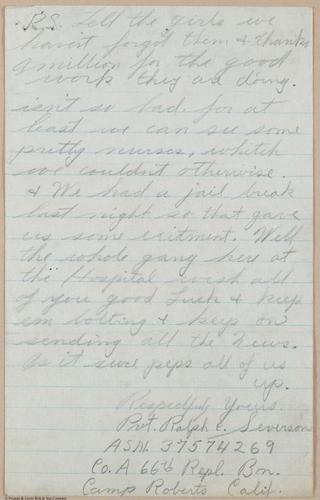 P.S. Tell the girls we
havin't forgot them & thanks
a million for the good
work they are doing.
isn't so bad for at
least we can see some
pretty nurses, whitch
we couldn't otherwise.
& We had a jail break
last night so that gave
us some exitment. Well
the whole gang here at
the Hospital wish all
of you good Luck & keep
em bolting & keep on
sending all the News.
As it sure peps all of us
up.
Respectfuly Yours.
Pvt. Ralph E. Severson
ASN. 37574269
Co. A 66th Repl. Bn.
Camp Roberts Calif.